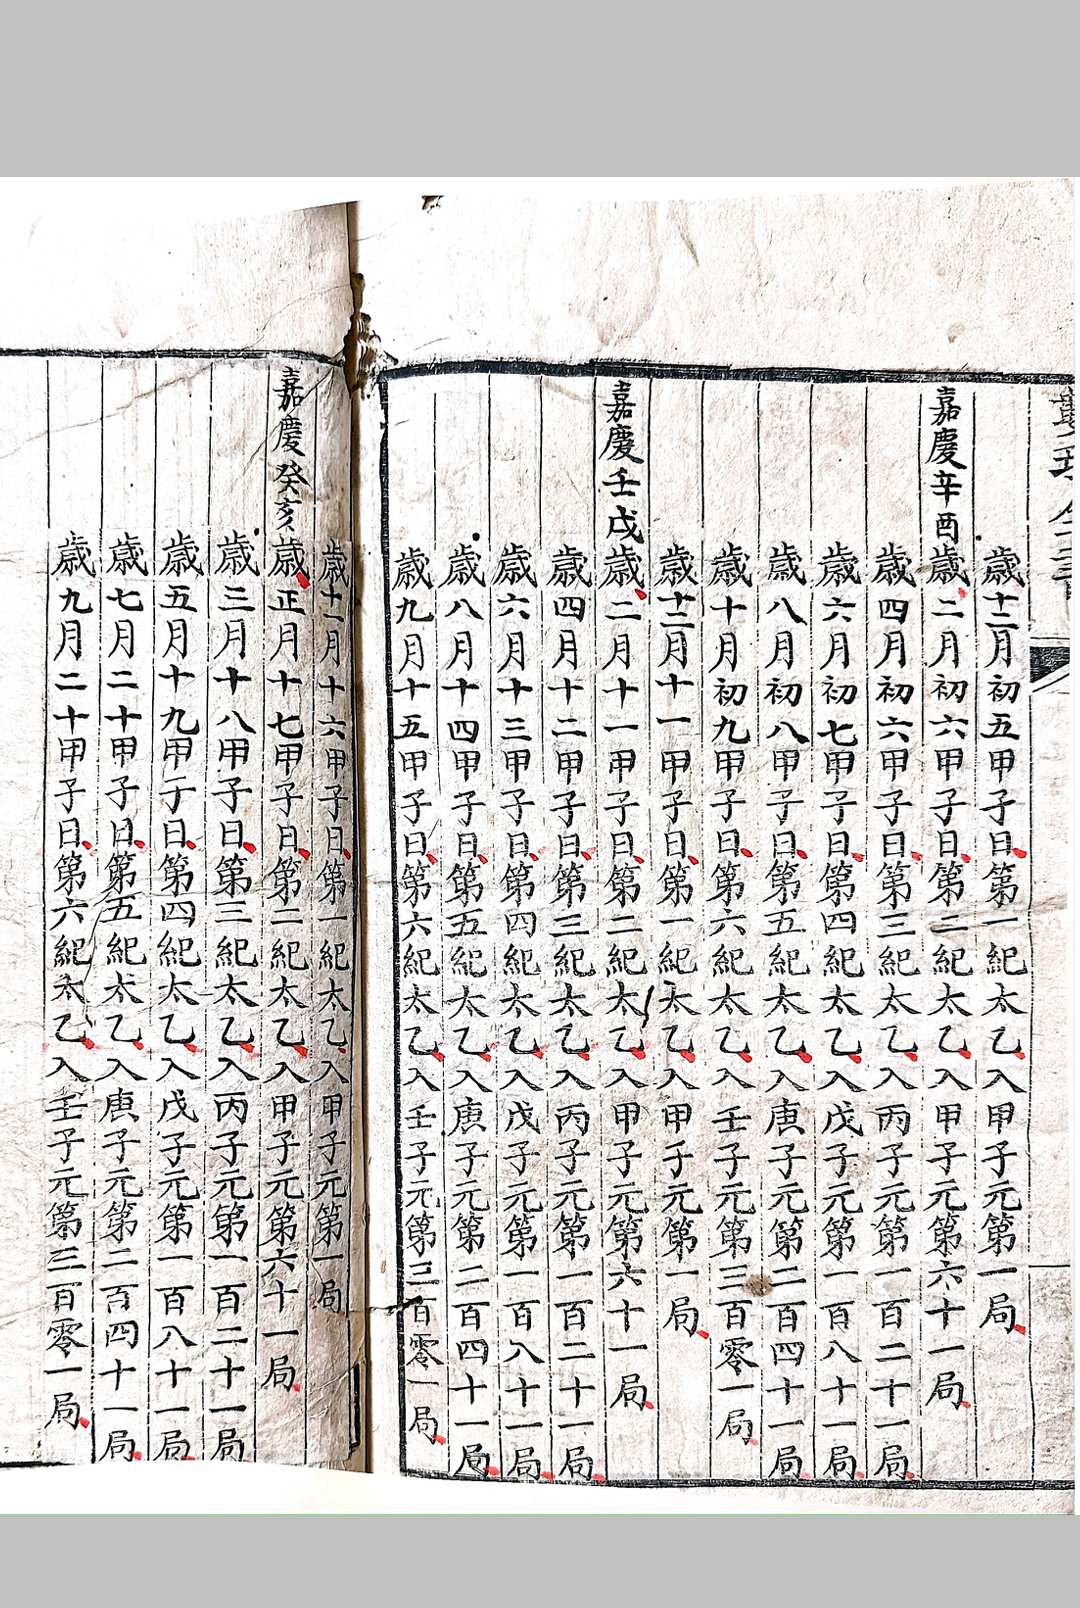 歲十二月初五甲子日第一紀太乙入甲子元第一局
嘉慶辛酉歲二月初六甲子日第二紀太乙入甲子元第六十一局
歲四月初六甲子日第三紀太乙入丙子元第一百二十一局
歲六月初七甲子日第四紀太乙入戊子元第一百八十一局
歲八月初八甲子日第五紀太乙入庚子元第二百四十一局
歲十月初九甲子日第六紀太乙入壬子元第三百零一局
歲十二月十一甲子日第一紀太乙入甲子元第一局
嘉慶壬戌歲二月十一甲子日第二紀太乙入甲子元第六十一局
歲四月十二甲子日第三紀太乙入丙子元第一百二十一局
歲六月十三甲子日第四紀太乙入戊子元第一百八十一局
歲八月十四甲子日第五紀太乙入庚子元第二百四十一局
歲九月十五甲子日第六紀太乙入壬子元第三百零一局
歲十一月十六甲子日第一紀太乙入甲子元第一局
嘉慶癸亥歲正月十七甲子日第二紀太乙入甲子元第六十一局
歲三月十八甲子日第三紀太乙入丙子元第一百二十一局
歲五月十九甲子日第四紀太乙入戊子元第一百八十一局
歲七月二十甲子日第五紀太乙入庚子元第二百四十一局
歲九月二十甲子日第六紀太乙入壬子元第三百零一局